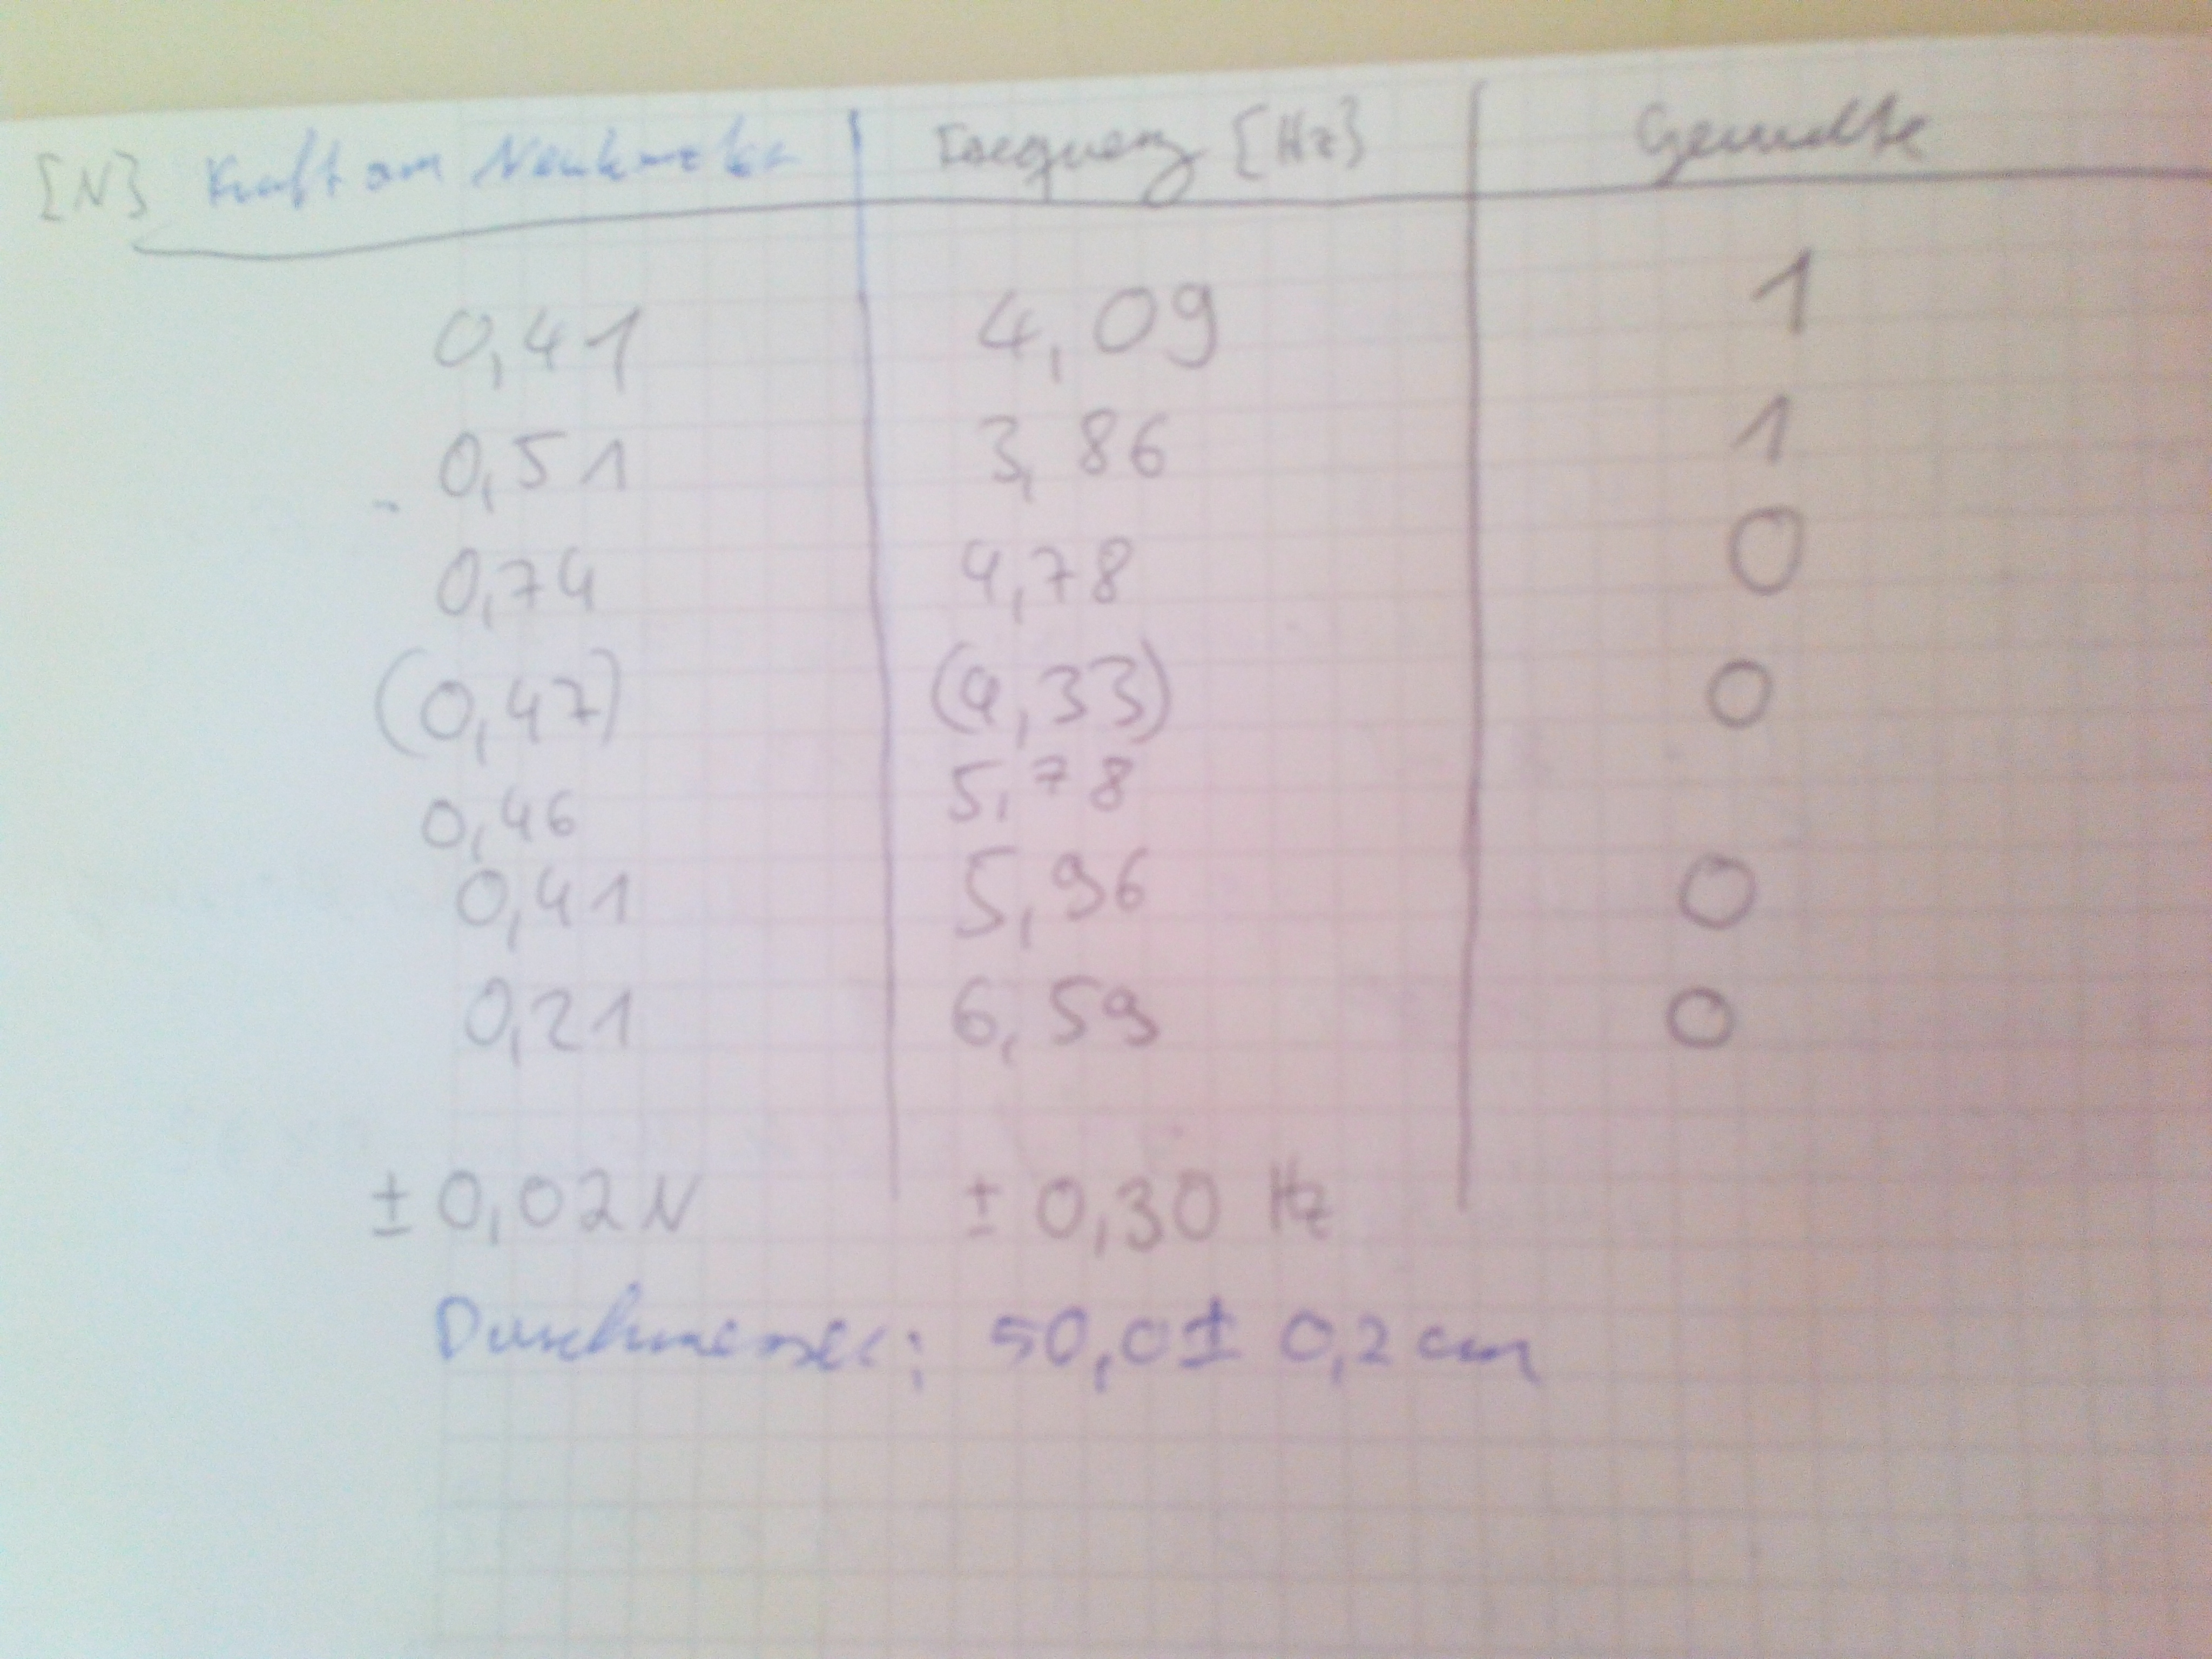 [N] Kraft am | Frequenz [Hz] | Gewichte
0,41 | 4,09 | 1
0,51 | 3,86 | 1
0,74 | 4,78 | 0
(0,47) | (4,33) | 0
0,46 | 5,78
0,41 | 5,96 | 0
0,21 | 6,59 | 0
± 0,02 N | ± 0,30 Hz
Durchmesser: 50,0 ± 0,2 cm